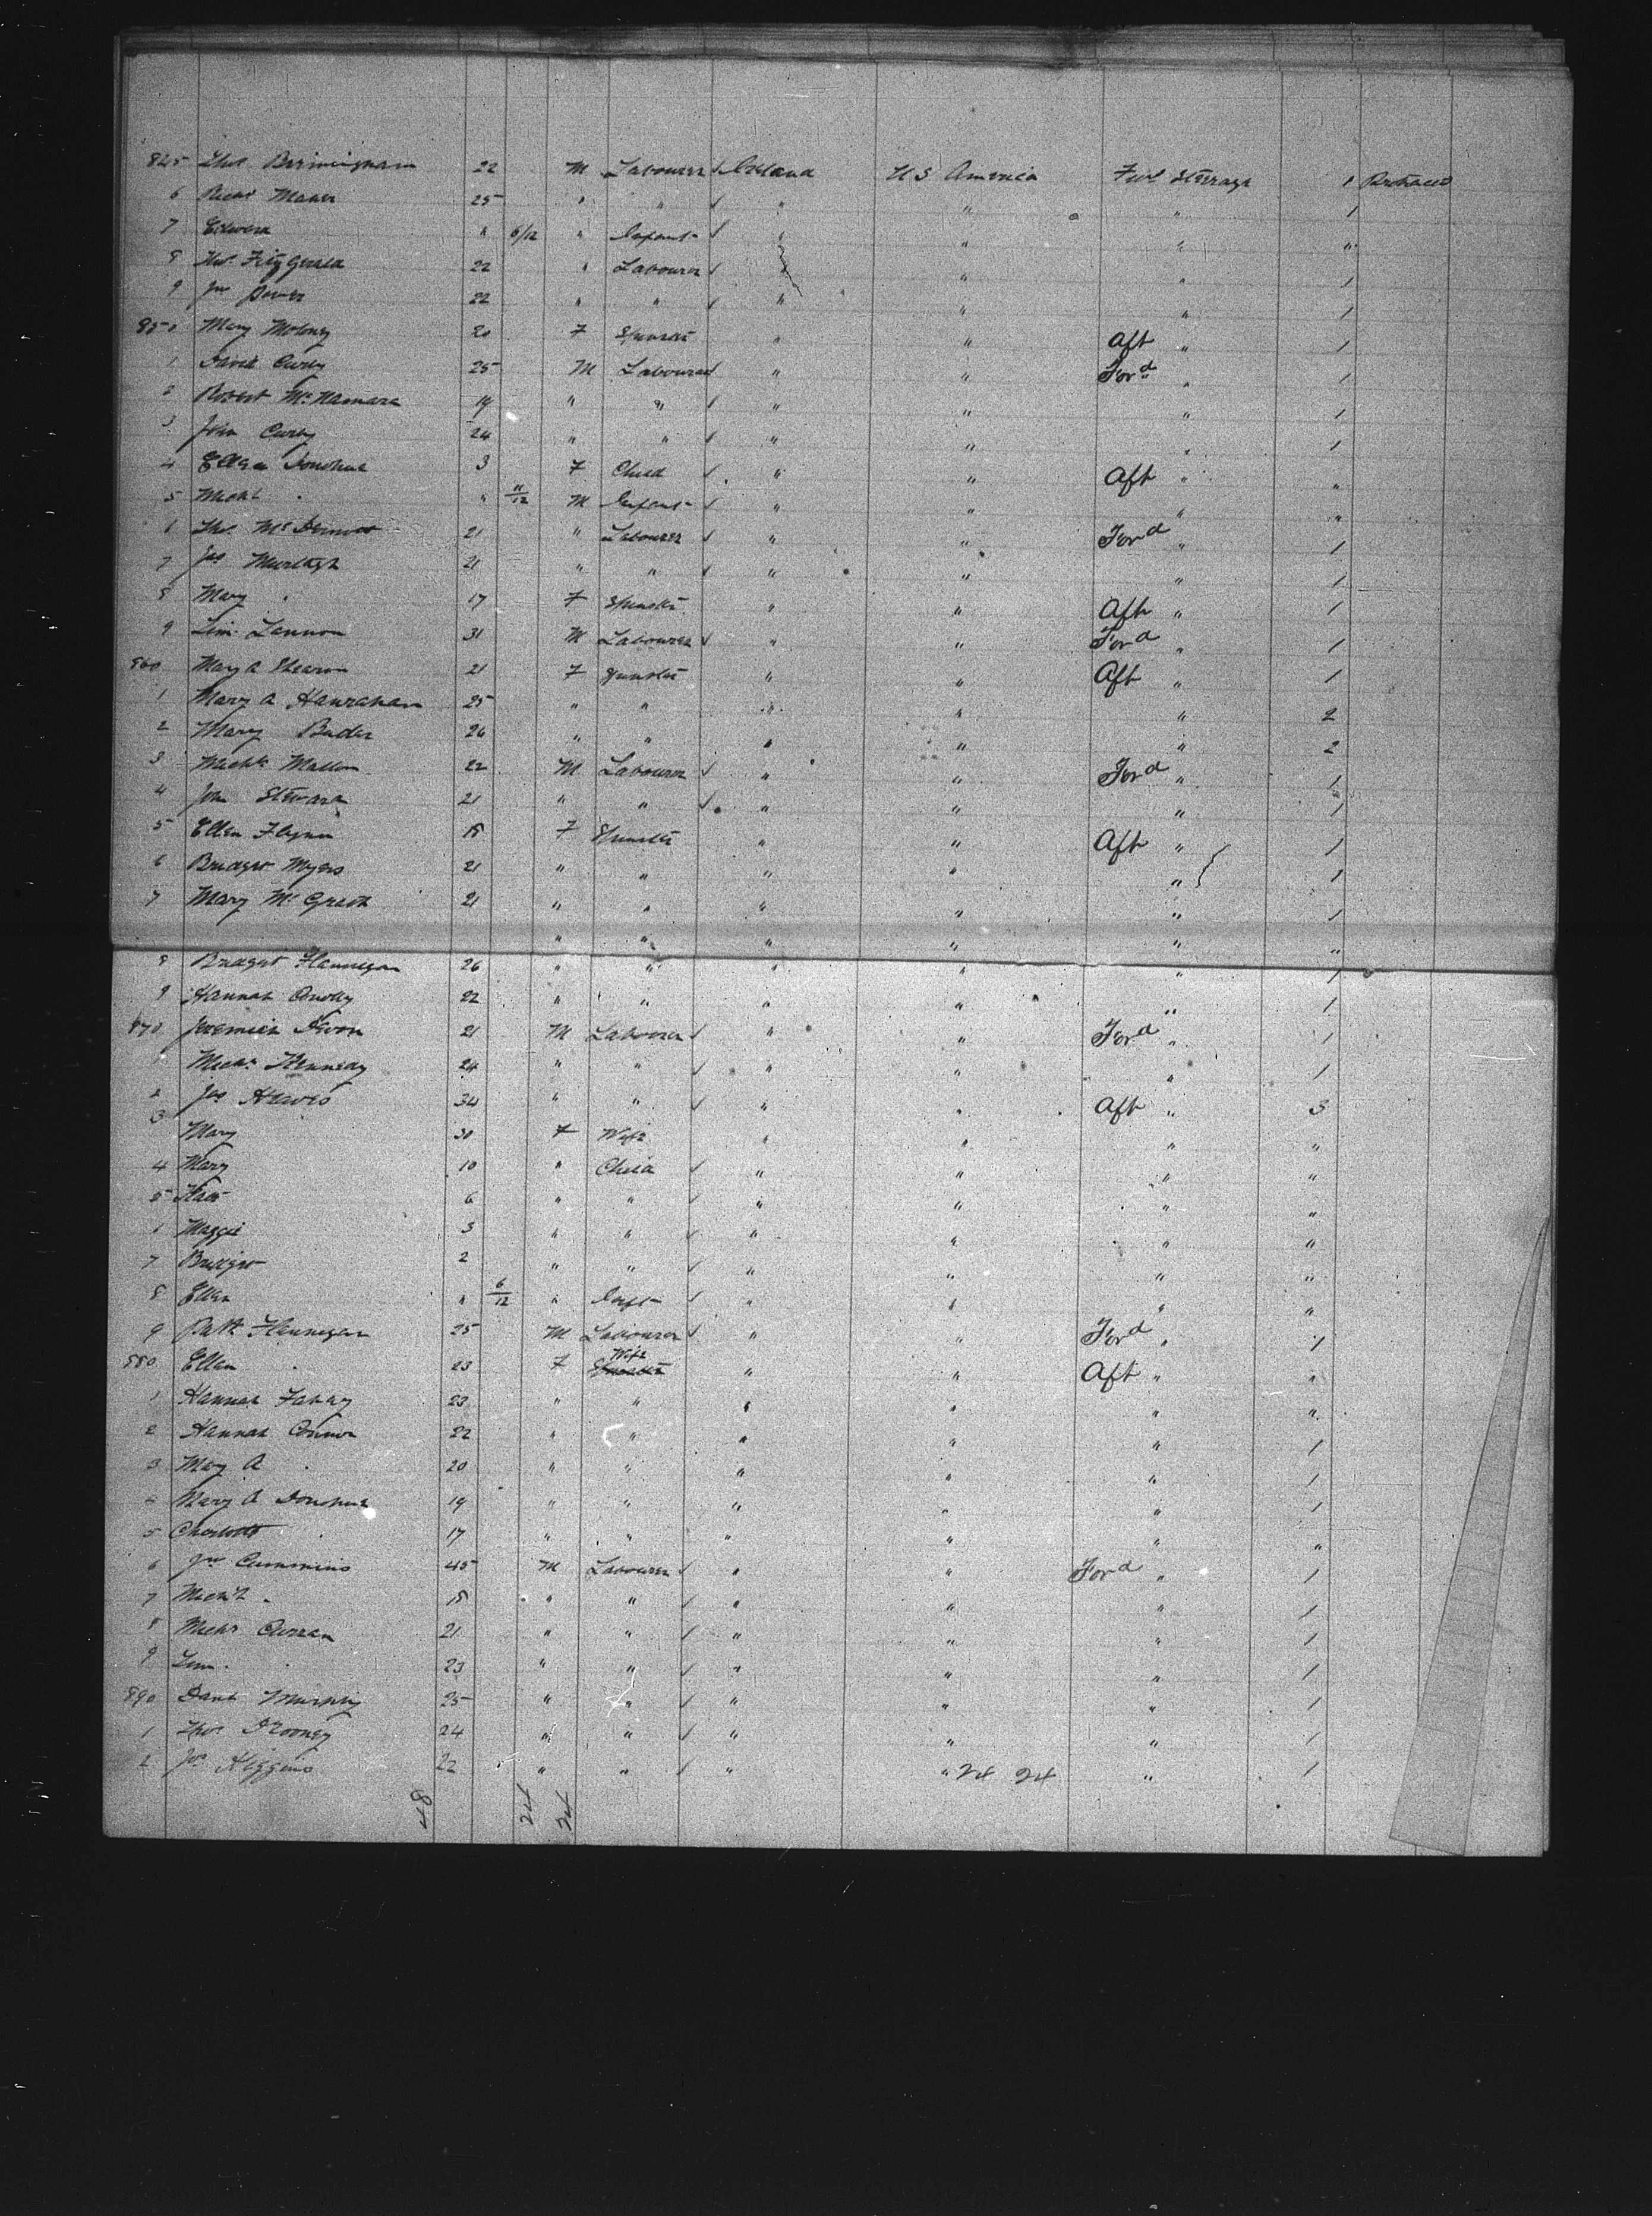 845 Thos Birmingham 22 M Labourer Ireland U S America Fwd Steerage 1 Protracted
6 Richd Maher 25 " " " " " 1
7 Edward " 6/12 " Infant " " " "
8 Thos FitzGerald 22 " Labourer " " " 1
9 Jno Power 22 " " " " " 1
850 Mary Molony 20 F Spinster " " Aft " 1
1 David Curley 25 M Labourer " " Ford " 1
2 Robert McNamara 19 " " " " " 1
3 John Curley 24 " " " " " 1
4 Ellen Donohue 3 F Child " " Aft " "
5 Michl " " 11/12 M Infant " " " "
6 Thos McDermott 21 " Labourer " " Ford " 1
7 Jas Murtagh 21 " " " " " 1
8 Mary " 17 F Spinster " " Aft " 1
9 Tim Lannon 31 M Labourer " " Ford " 1
860 Mary A 21 F Spinster " " Aft " 1
1 Mary A Hanrahan 25 " " " " " 2
2 Mary 26 " " " " " 2
3 Michl Mallon 22 M Labourer " " Ford " 1
4 John Steward 21 " " " " " 1
5 Ellen Flynn 18 F Spinster " " Aft " 1
6 Bridget Myers 21 " " " " " 1
7 Mary McGrath 21 " " " " " 1
" " " " " "
8 Bridget Flannegan 26 " " " " " 1
9 Hannah Conolly 22 " " " " " 1
870 Jeremiah 21 M Labourer " " Ford " 1
1 Michl Kennedy 24 " " " " " 1
2 Jas 34 " " " " Aft " 3
3 Mary 30 F Wife " " " "
4 Mary 10 " Child " " " "
5 Kate 6 " " " " " "
6 Maggie 3 " " " " " "
7 Bridget 2 " " " " " "
8 Ellen " 6/12 " Inft " " " "
9 Patk Flannegan 25 M Labourer " " Ford " 1
880 Ellen " 23 F Wife " " Aft " "
1 Hannah Fahey 23 " " " " " "
2 Hannah Connor 22 " " " " " 1
3 Mary A " 20 " " " " " 1
4 Mary A Donohue 19 " " " " " 1
5 Charlotte " 17 " " " " " "
6 Jno Cummins 45 M Labourer " " Ford " 1
7 Michl " 18 " " " " " 1
8 Michl Curran 21 " " " " " 1
9 Tim " 23 " " " " " 1
890 Danl Murphy 25 " " " " " 1
1 Thos 24 " " " " " 1
2 Jas Higgins 22 " " " " 24 24 " 1
48 24 24